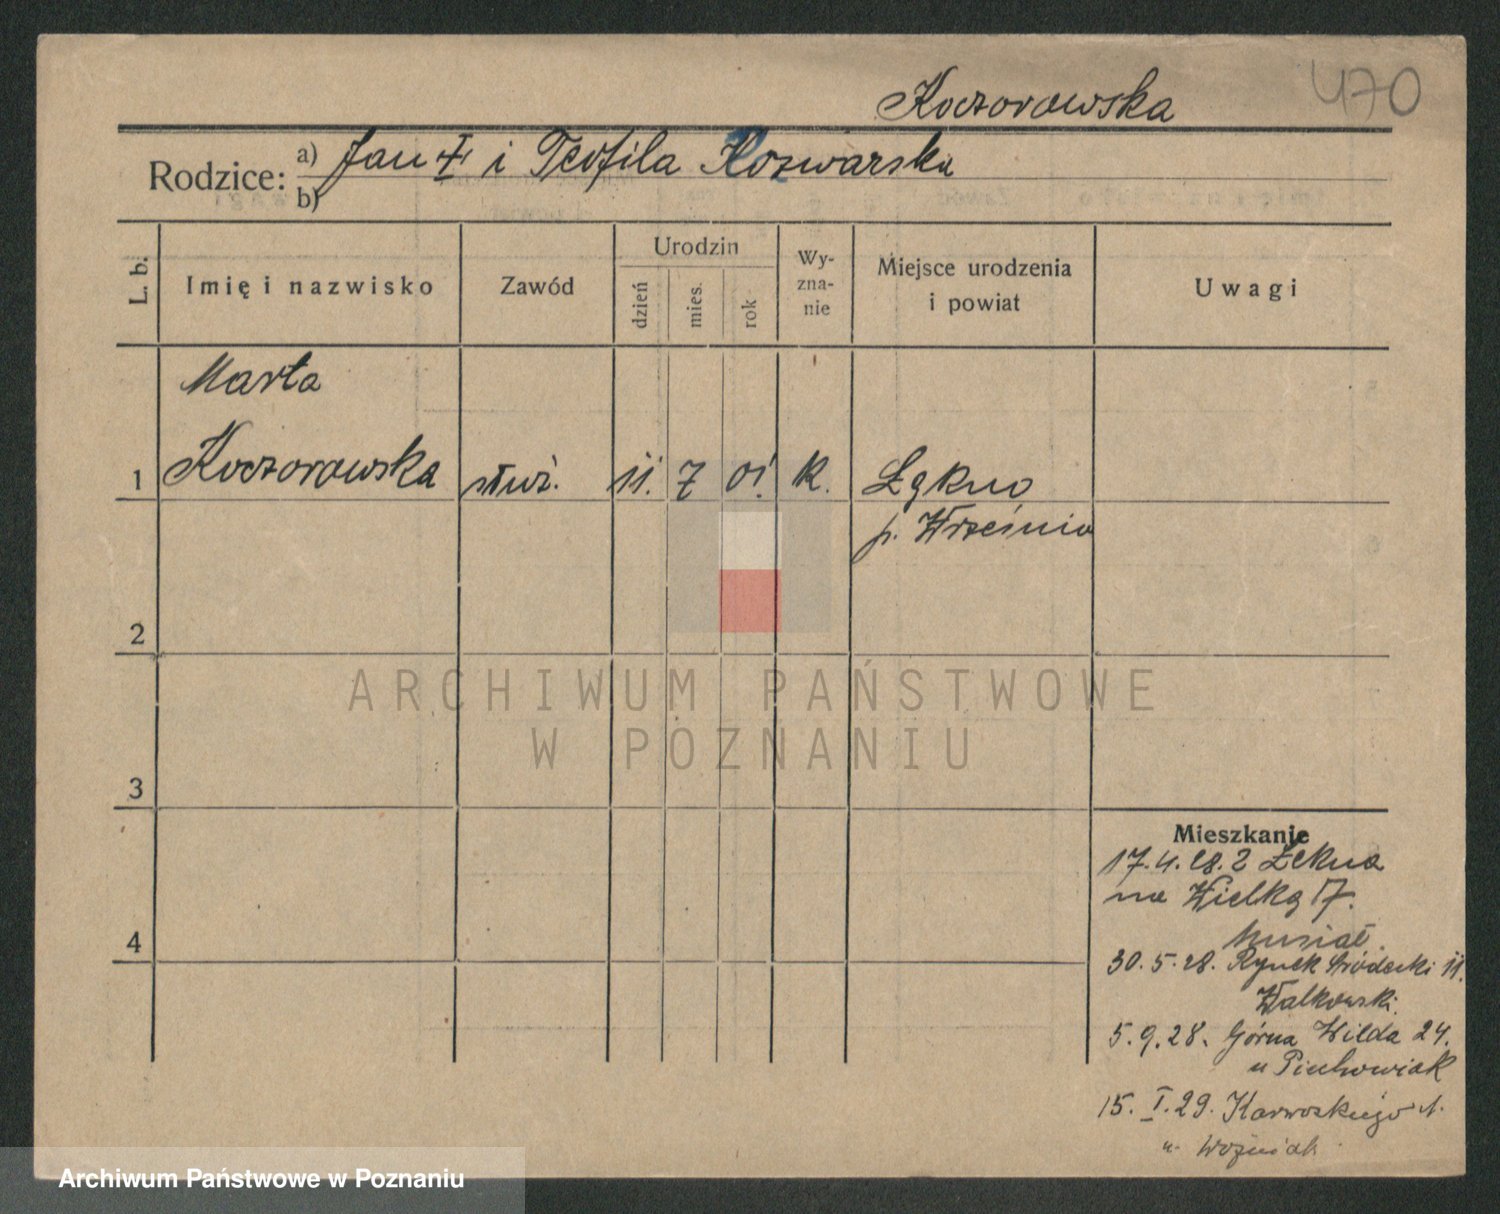 470
Koczorowska
Rodzice: a) Jan i Teofila
b)
L. b.
Imię i nazwisko
Zawód
Urodzin
dzień
mies.
rok
Wy-
zna-
nie
Miejsce urodzenia
i powiat
Uwagi
Marta
1 Koczorowska służ. 11. 7 01. k. Łękno
p. Września
2
3
4
ARCHIWUM PAŃSTWOWE
W POZNANIU
Mieszkanie
17.4.28. z Łekna
na Wielką 17.
Musiał.
30.5.28. Rynek śródecki 11.
Walkowski.
5.9.28. Górna Wilda 24.
u Piechowiak
15. I. 29.
u. Woźniak
Archiwum Państwowe w Poznaniu